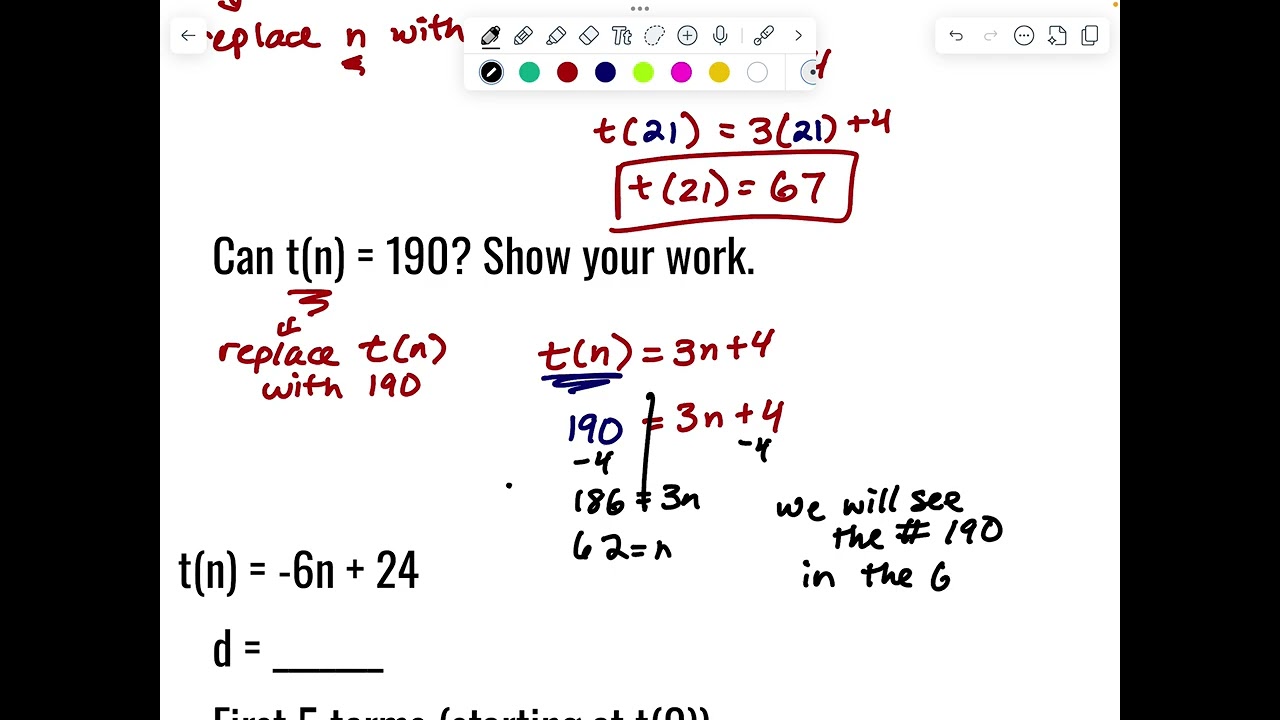 replace n with
Tt
t(21) = 3(21) +4
t(21) = 67
Can t(n) = 190? Show your work.
replace t(n)
with 190
t(n) = 3n+4
190 = 3n + 4
-4 -4
186 = 3n
62 = n
we will see
the # 190
in the 6
t(n) = -6n + 24
d = ______
First 5 terms (starting at t(0))